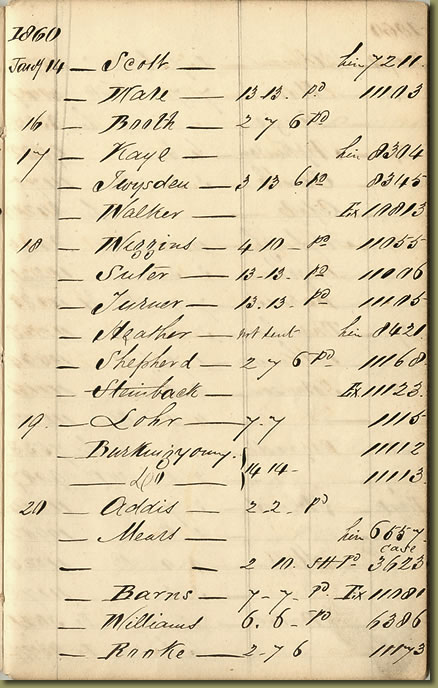 1860
Jany 14 — Scott — hin 7211.
— Hare — 13.13. Pd 11103
16 — Booth — 2 7 6 Pd
17 — Kaye — hin 8304
— Twysden — 3 13 6 Pd 8345
— Walker — Ex 10813
18 — Wiggins — 4.10 — Pd 11055
— Suter — 13.13. Pd 11006
— Turner — 13.13. Pd 11105
— not sent hin 8421
— Shepherd — 2 7 6 Pd 11168
— Steinback — Ex 11123.
19. — Lohr — 7.7 1115
— Burkingyoung. 11112
— Do — } 14 14 — 11113.
20 — Addis — 2 2. Pd
— Mears — hin 6057
case
— — 2 10. SH Pd 3623
— Barns — 7-7. Pd. Ex 11081
— Williams — 6.6. Pd 6386
— Rooke — 2-7 6 11173